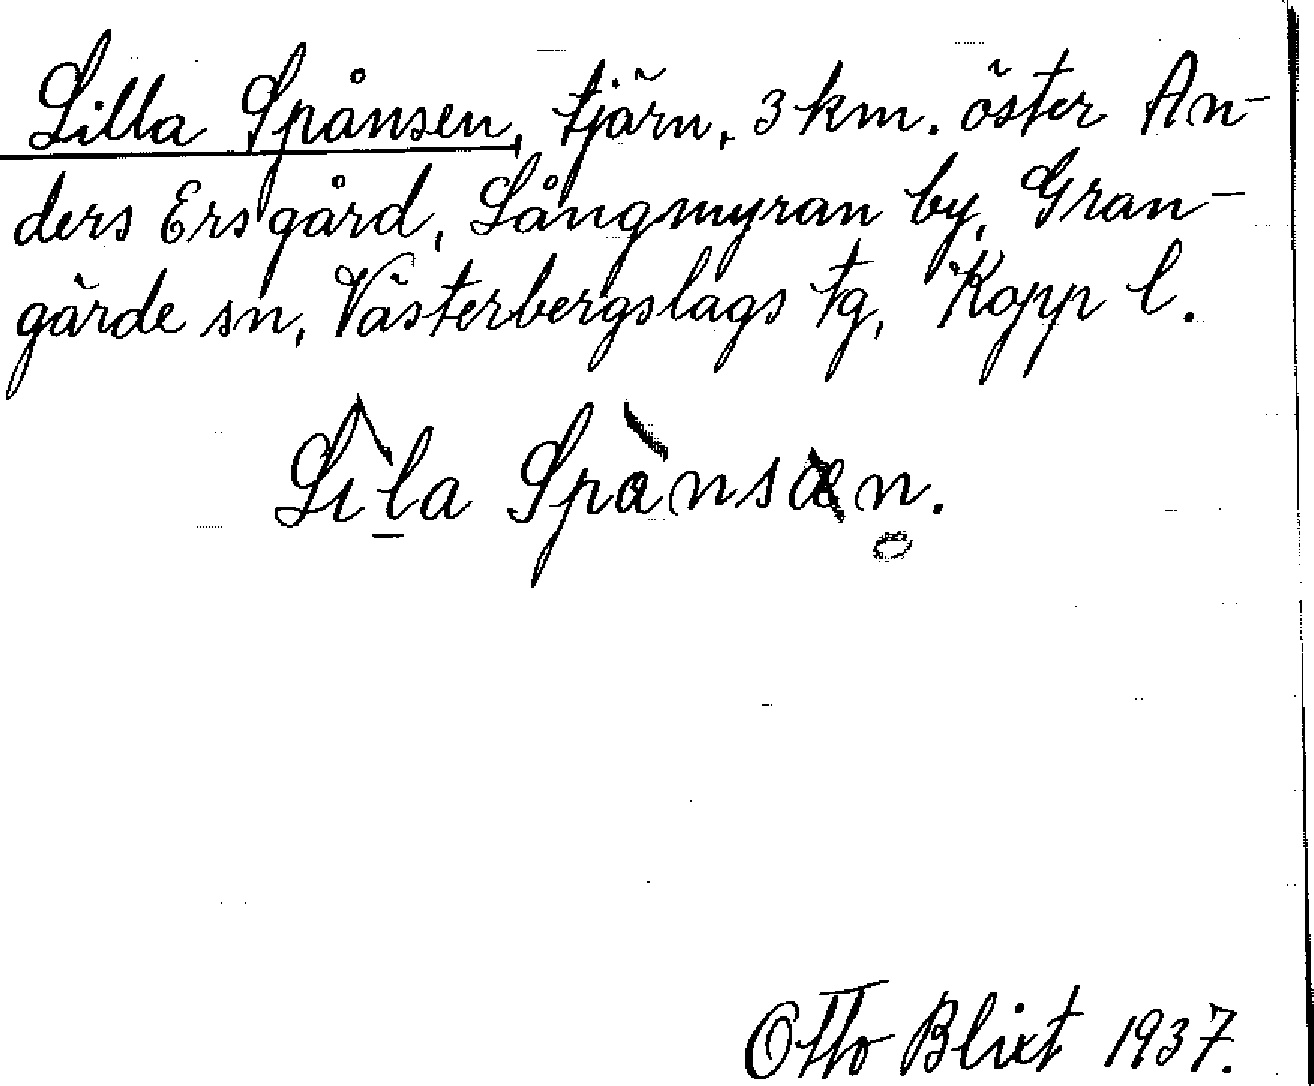 Lilla Spånsen, tjärn, 3 km. öster An-
ders Ersgård, Långmyran by, Gran-
gärde sn, Västerbergslags tg, Kopp l.
Lìl̠a Spànsæn̥.
Otto Blixt 1937.